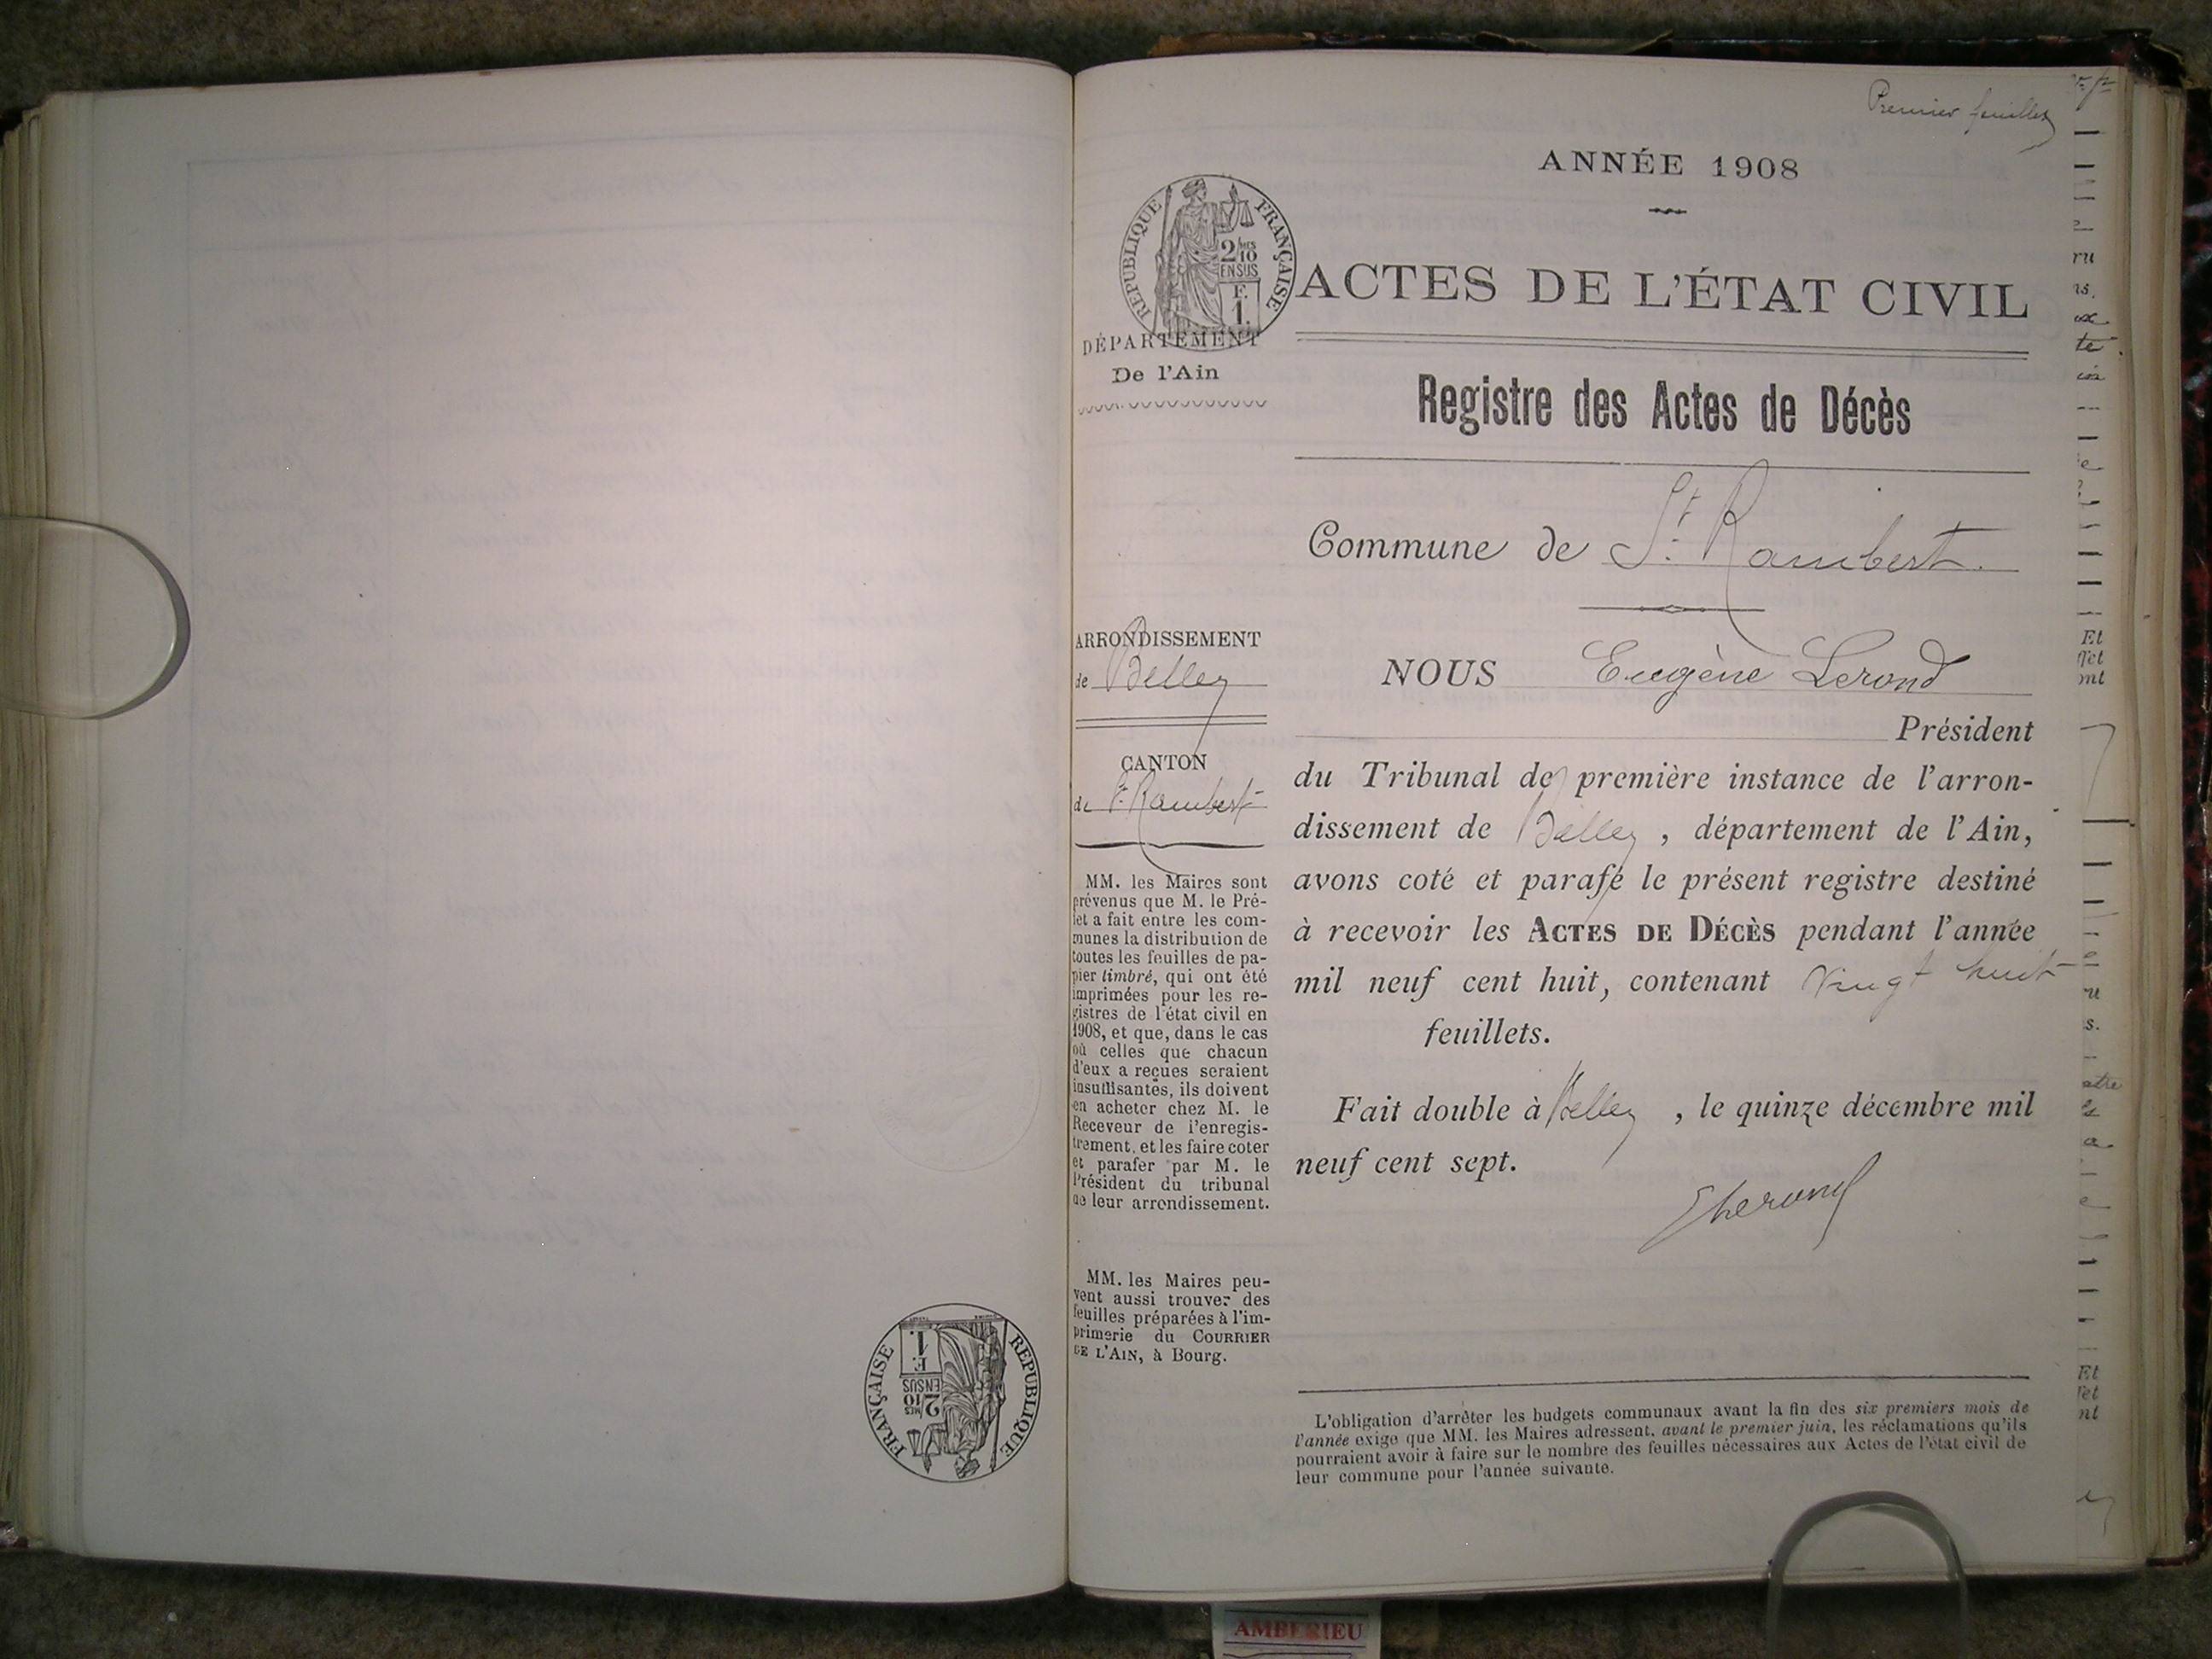 Premier feuillet
ANNÉE 1908
RÉPUBLIQUE FRANÇAISE
2 MES
10
EN SUS
F.
1.
ACTES DE L'ÉTAT CIVIL
DÉPARTEMENT
De l'Ain
Registre des Actes de Décès
Commune de St. Rambert.
ARRONDISSEMENT
de Belley
CANTON
de St. Rambert
MM. les Maires sont
prévenus que M. le Pré-
fet a fait entre les com-
munes la distribution de
toutes les feuilles de pa-
pier timbré, qui ont été
imprimées pour les re-
gistres de l'état civil en
1908, et que, dans le cas
où celles que chacun
d'eux a reçues seraient
insuffisantes, ils doivent
en acheter chez M. le
Receveur de l'enregis-
trement, et les faire coter
et parafer par M. le
Président du tribunal
de leur arrondissement.
MM. les Maires peu-
vent aussi trouver des
feuilles préparées à l'im-
primerie du COURRIER
DE L'AIN, à Bourg.
NOUS Eugène Lerond
Président
du Tribunal de première instance de l'arron-
dissement de Belley, département de l'Ain,
avons coté et parafé le présent registre destiné
à recevoir les ACTES DE DÉCÈS pendant l'année
mil neuf cent huit, contenant Vingt huit
feuillets.
Fait double à Belley, le quinze décembre mil
neuf cent sept.
ELerond
L'obligation d'arrêter les budgets communaux avant la fin des six premiers mois de
l'année exige que MM. les Maires adressent, avant le premier juin, les réclamations qu'ils
pourraient avoir à faire sur le nombre des feuilles nécessaires aux Actes de l'état civil de
leur commune pour l'année suivante.
RÉPUBLIQUE FRANÇAISE
2 MES
10
EN SUS
F.
1.
AMBERIEU